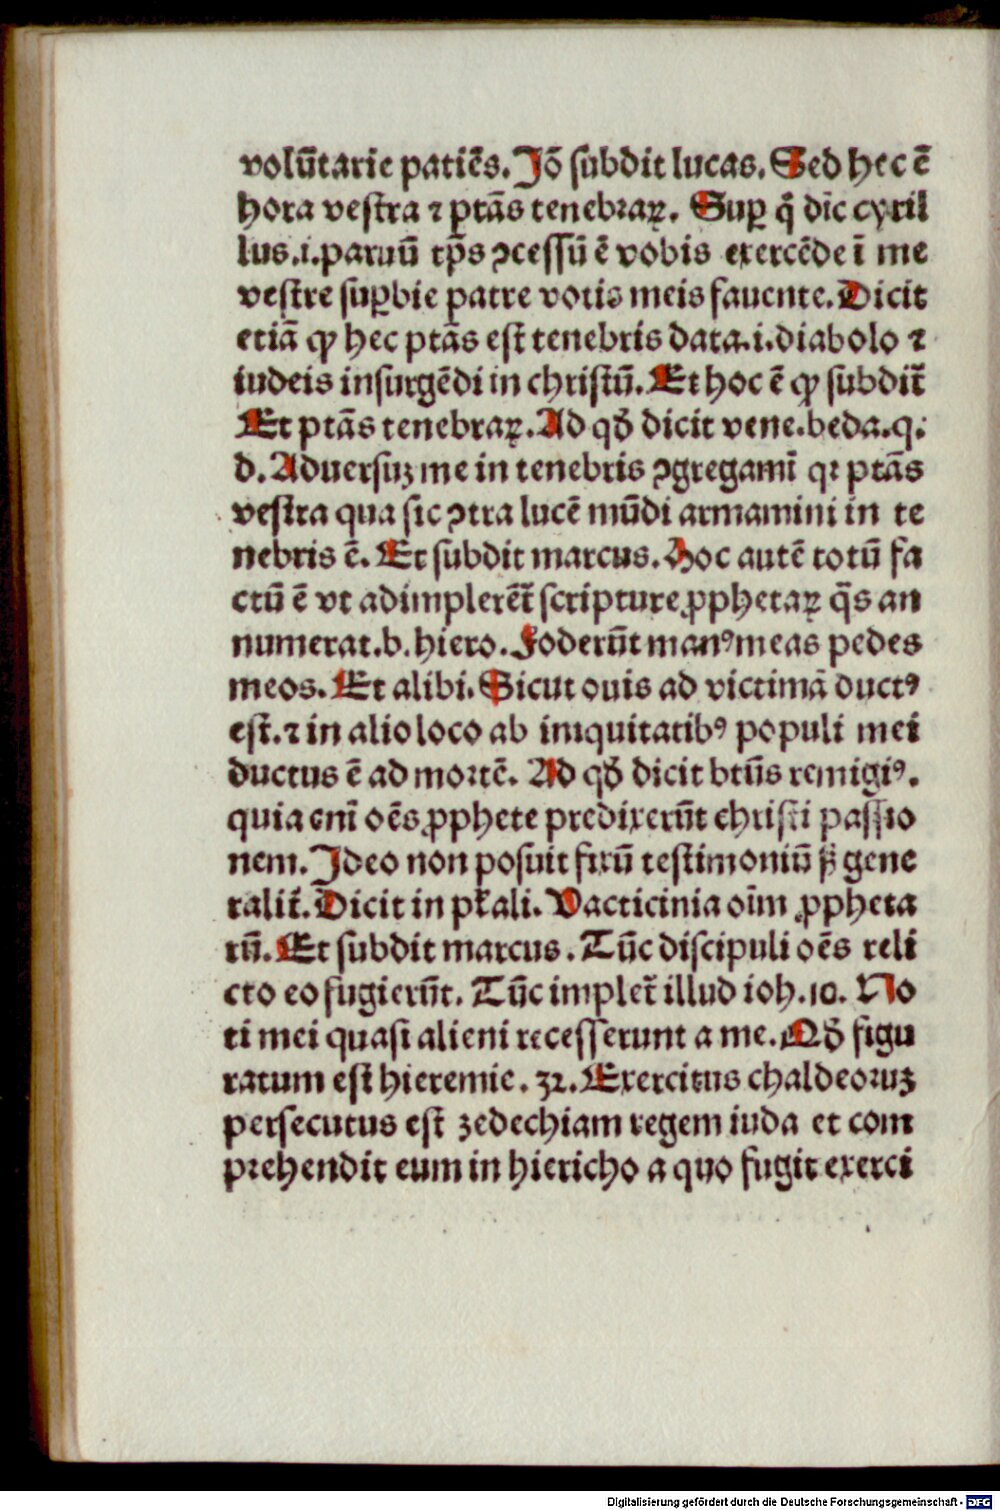 volūtarie patiēs. Jō subdit lucas. Sed hec ē
hora vestra ⁊ ptās tenebraꝝ. Suꝑ q̄ dic̄ cyril
lus .i. paruū tp̄s ꝯcessū ē vobis exercēde ī me
vestre suꝑbie patre votis meis fauente. Dicit
etiā ꝙ hec ptās est tenebris data .i. diabolo ⁊
iudeis insurgēdi in christū. Et hoc ē ꝙ subdit̄
Et ptās tenebraꝝ. Ad qđ dicit vene. beda. q.
d. Aduersuꝫ me in tenebris ꝯgregamī qꝛ ptās
vestra qua sic ꝯtra lucē mūdi armamini in te
nebris ē. Et subdit marcus. Hoc autē totū fa
ctū ē vt adimplerēt̄ scripture ꝓphetaꝝ q̄s an
numerat .b. hiero. Foderūt manꝰ meas pedes
meos. Et alibi. Sicut ouis ad victimā ductꝰ
est. ⁊ in alio loco ab iniquitatibꝰ populi mei
ductus ē ad mortē. Ad qđ dicit btūs remigiꝰ.
quia enī oēs ꝓphete predixerūt christi passio
nem. Ideo non posuit firū testimoniū ẜ gene
ralit̄. Dicit in pľali. Vacticinia oīm ꝓpheta
rū. Et subdit marcus. Tūc discipuli oēs reli
cto eo fugierūt. Tūc implet̄ illud ioh. 10. No
ti mei quasi alieni recesserunt a me. Qđ figu
ratum est hieremie. 32. Exercitus chaldeoruꝫ
persecutus est zedechiam regem iuda et com
prehendit eum in hiericho a quo fugit exerci
Digitalisierung gefördert durch die Deutsche Forschungsgemeinschaft - DFG